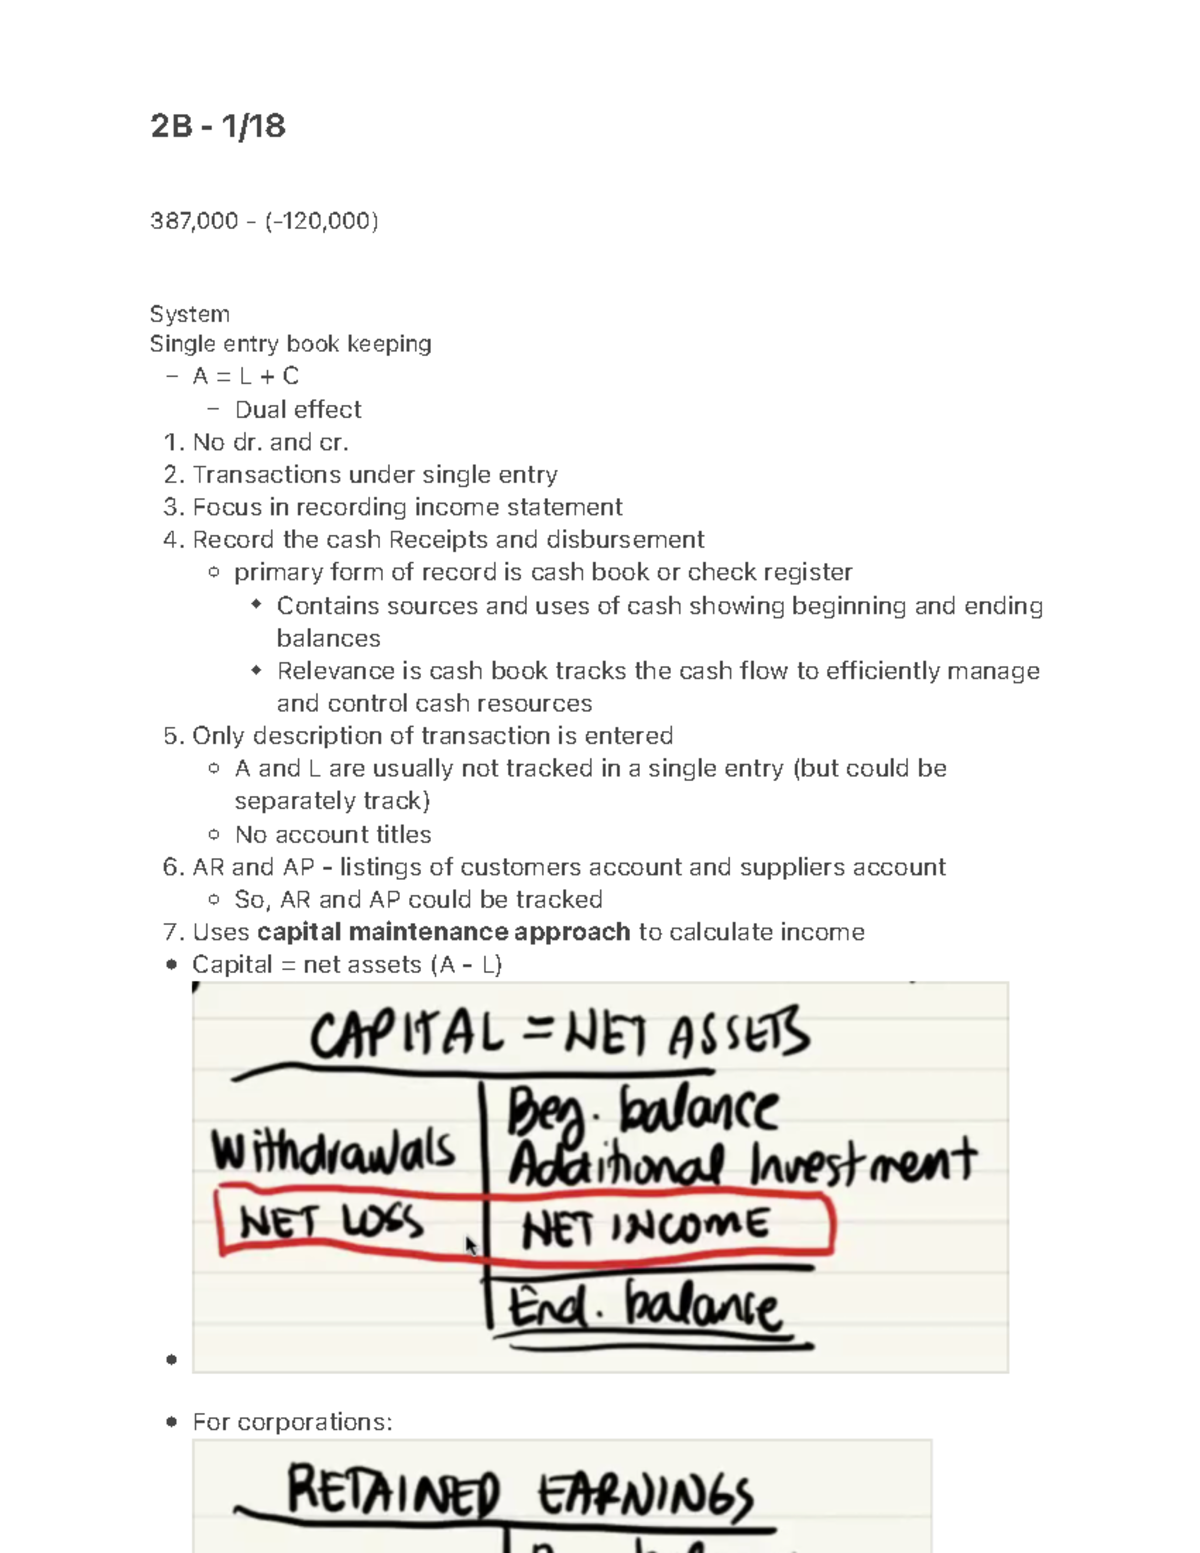 2B - 1/18
387,000 - (-120,000)
System
Single entry book keeping
– A = L + C
– Dual effect
1. No dr. and cr.
2. Transactions under single entry
3. Focus in recording income statement
4. Record the cash Receipts and disbursement
○ primary form of record is cash book or check register
◆ Contains sources and uses of cash showing beginning and ending
balances
◆ Relevance is cash book tracks the cash flow to efficiently manage
and control cash resources
5. Only description of transaction is entered
○ A and L are usually not tracked in a single entry (but could be
separately track)
○ No account titles
6. AR and AP - listings of customers account and suppliers account
○ So, AR and AP could be tracked
7. Uses capital maintenance approach to calculate income
● Capital = net assets (A - L)
CAPITAL = NET ASSETS
Beg. balance
Withdrawals Additional Investment
NET LOSS NET INCOME
End. balance
● For corporations:
RETAINED EARNINGS